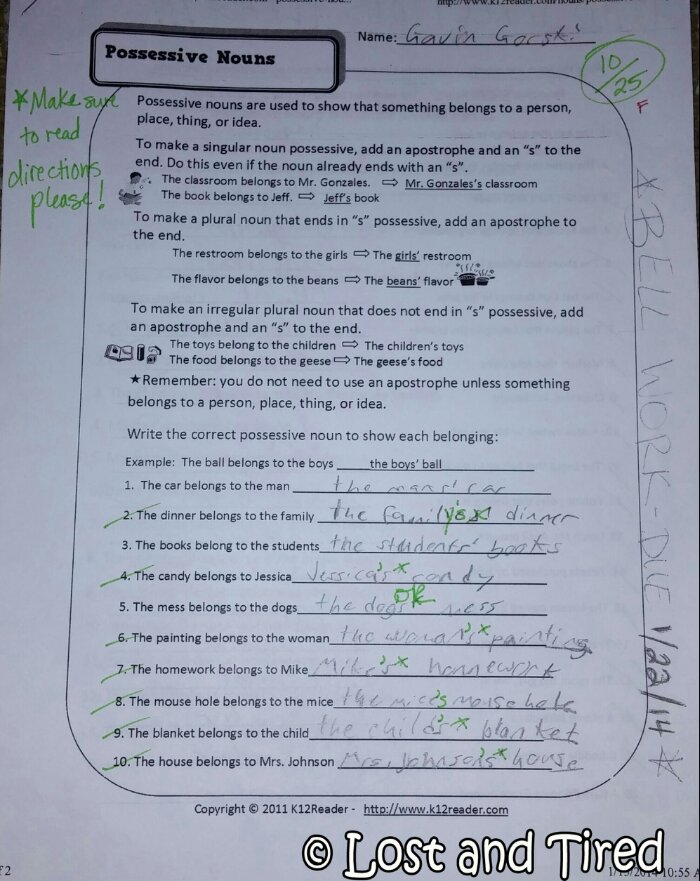 http://www.k12reader.com/nouns/posses
Name: Gavin Gorski
Possessive Nouns
10/25
F
*Make sure
to read
directions
please!
Possessive nouns are used to show that something belongs to a person,
place, thing, or idea.
To make a singular noun possessive, add an apostrophe and an “s” to the
end. Do this even if the noun already ends with an “s”.
The classroom belongs to Mr. Gonzales. ⇨ Mr. Gonzales’s classroom
The book belongs to Jeff. ⇨ Jeff’s book
To make a plural noun that ends in “s” possessive, add an apostrophe to
the end.
The restroom belongs to the girls ⇨ The girls’ restroom
The flavor belongs to the beans ⇨ The beans’ flavor
To make an irregular plural noun that does not end in “s” possessive, add
an apostrophe and an “s” to the end.
The toys belong to the children ⇨ The children’s toys
The food belongs to the geese ⇨ The geese’s food
★Remember: you do not need to use an apostrophe unless something
belongs to a person, place, thing, or idea.
Write the correct possessive noun to show each belonging:
Example: The ball belongs to the boys the boys’ ball
1. The car belongs to the man the mans' car
2. The dinner belongs to the family the family's dinner
3. The books belong to the students the students' books
4. The candy belongs to Jessica Jessica's candy
5. The mess belongs to the dogs the dogs ok mess
6. The painting belongs to the woman the woman's painting
7. The homework belongs to Mike Mike's homework
8. The mouse hole belongs to the mice the mice's mouse hole
9. The blanket belongs to the child the child's blanket
10. The house belongs to Mrs. Johnson Mrs. Johnson's house
*BELL WORK-DUE 1/22/14*
Copyright © 2011 K12Reader - http://www.k12reader.com
© Lost and Tired
f 2
10:55